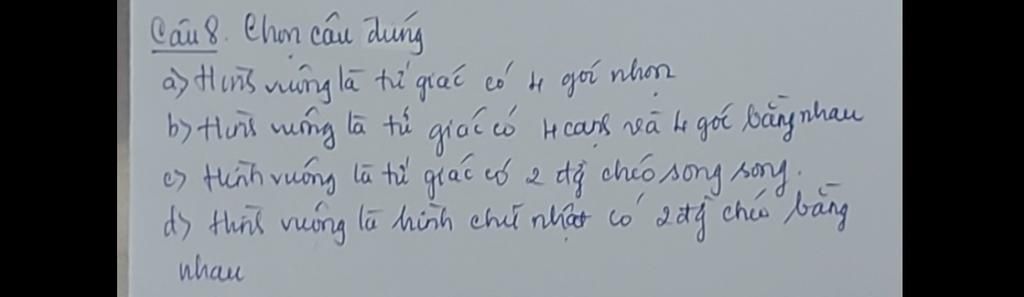 Câu 8. Chọn câu đúng
a) Hình vuông là tứ giác có 4 góc nhọn
b) Hình vuông là tứ giác có 4 cạnh và 4 góc bằng nhau
c) Hình vuông là tứ giác có 2 đg chéo song song.
d) Hình vuông là hình chữ nhật có 2 đg chéo bằng
nhau